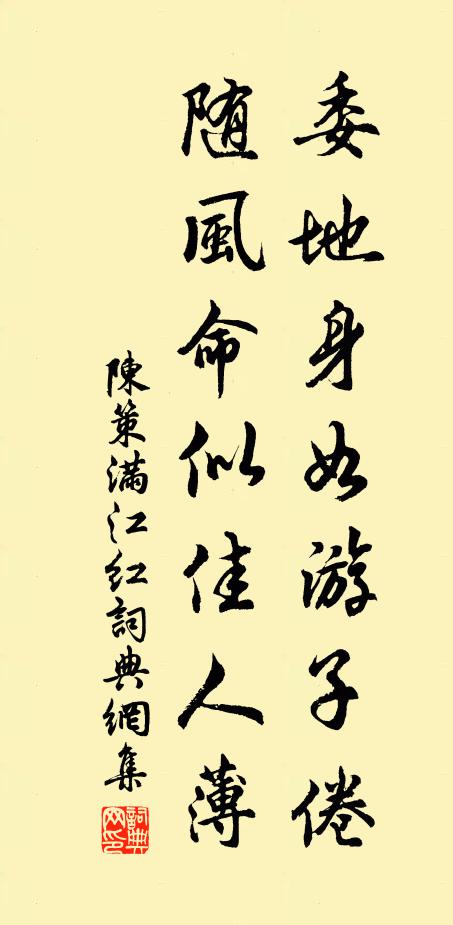 委地身如游子倦
随風命似佳人薄
陳策滿江红詞典網集
詞典网印